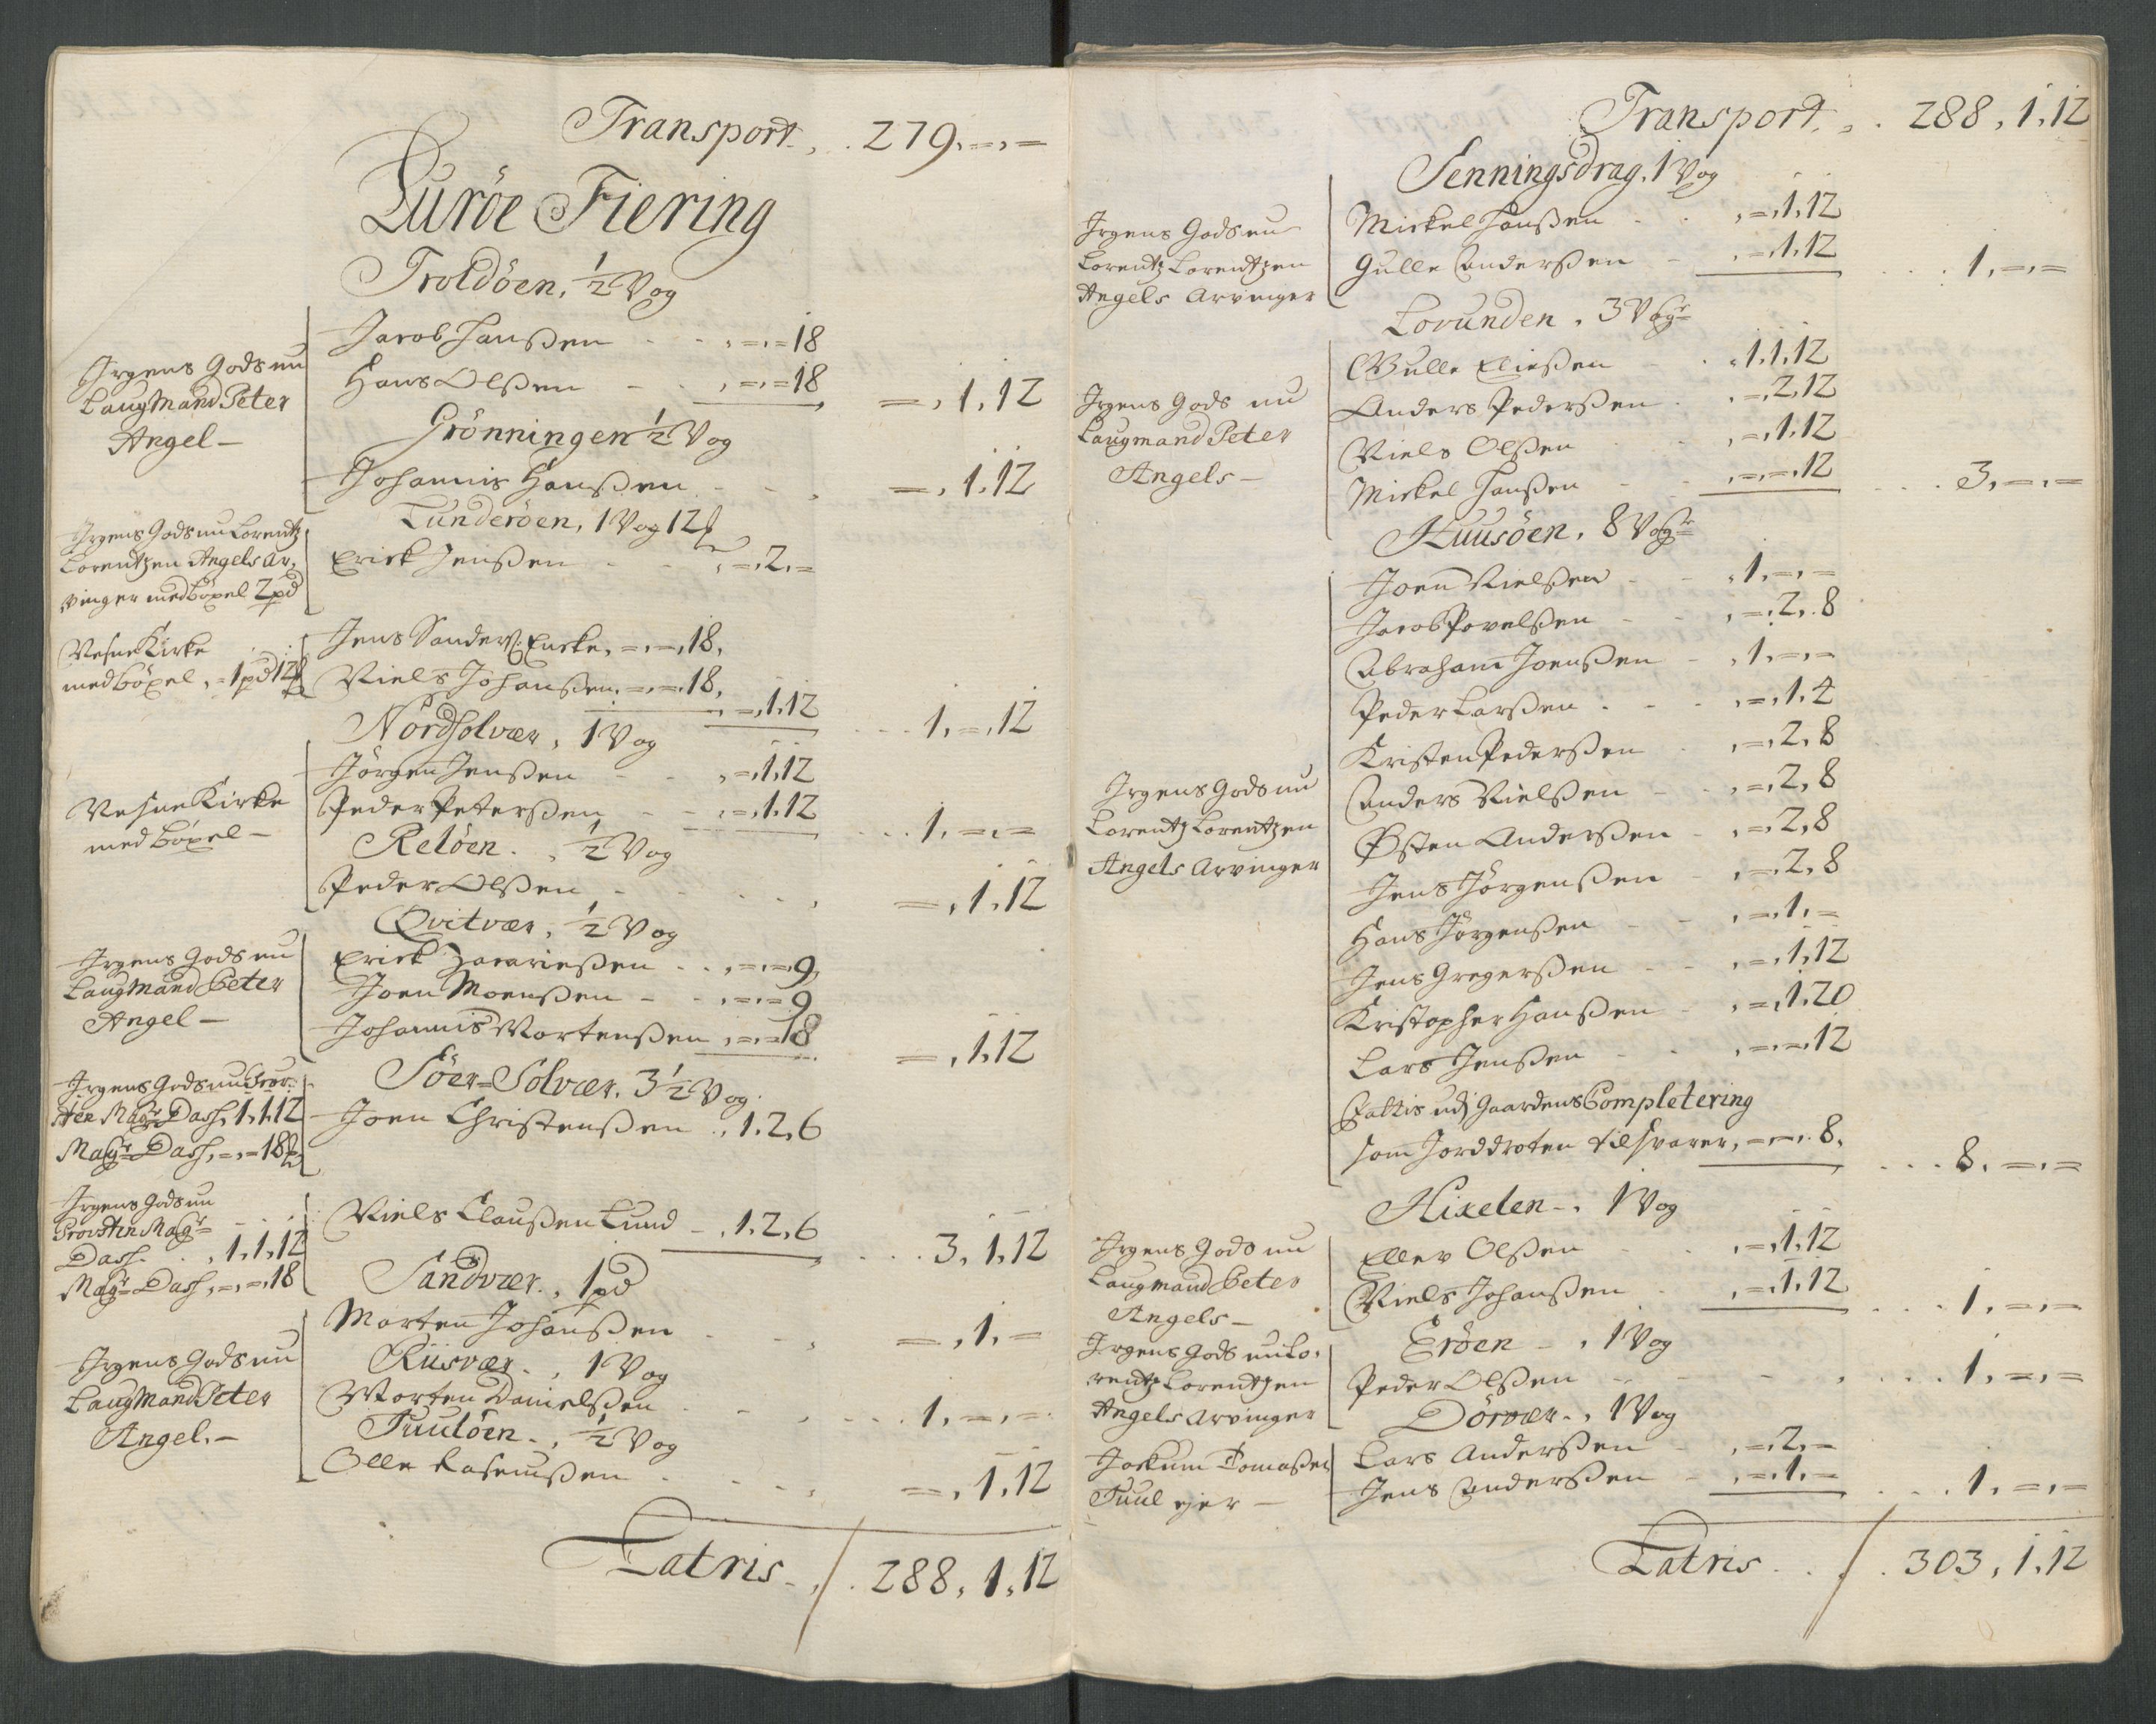 Transport . . 279,=,=
Lurøe Fiering
Troldöen, ½ Vog
Irgens Gods nu
Laugmand Peter
Angel —
Jacob Hanßen - - ,=,=18
Hans Olßen - - ,=,=18
=,1,12
Grönningen ½ Vog
Johannis Hanßen - - , =,1.12
Lunderöen, 1 Vog 12
Irgens Gods nu Lorentz
Lorentzen Angels Ar,
vinger med böxel 2 pd
Erick Jenßen - - ,=,2,=
Nesne Kirke
med böxel ,=1pd12
Jens Sanders: Encke, =,=,18,
Niels Johanßen, =,=,18,
,=,1,12
1,=,12
Nordsolvær, 1 Vog
Nesne Kirke
med böxel —
Jörgen Jenßen - - ,=,1,12
Peder Peterßen - - ,=,1.12
. . 1,=,=
Reløen . , ½ Vog
Peder Olßen - . . . , =,1,12
Qvitvær, ½ Vog
Irgens Gods nu
Laugmand Peter
Angel —
Erick Zacarießen . . ,=,=,9,
Joen Moenßen - - ,=,=9
Johannis Mortenßen ,=,=18
=,1,12
Söer=Solvær, 3½ Vog.
Irgens Gods nu Prov:
sten Magr Dass, 1,1,12
Magr Dass, =,=18
Joen Christenßen . ,1.2,6
Irgens Gods nu
Provsten Magr
Dass . . , 1,1,12
Magr Dass, =,=,18
Niels Claußen Lund - . 1.2,6
. . 3,1,12
Sandvær . , 1 pd
Morten Johanßen - - , =,1,=
Irgens Gods nu
Laugmand Peter
Angel. —
Riisvær . , 1 Vog
Morten Danielßen . - , . . . 1,=,=
Tuuløen . , ½ Vog
Olle Rasmußen . . . . , =,1,12
Latris . , / . 288,1,12
Transport . . 288,1,12
Senningsdrag, 1 Vog
Irgens Gods nu
Lorentz Lorentzen
Angels Arvinger
Mickel Hanßen - . ,=,1,12
Gulle Anderßen - ,=,1,12
. . . 1,=,=
Lovunden, 3 Vogr
Irgens Gods nu
Laugmand Peter
Angels —
Gulle Eließen - . ,1.1.12
Anders Pederßen . . ,=,2,12
Niels Olßen . . ,=,1,12
Mickel Hanßen - - ,=,=,12
. . . 3,=,=
Huusöen, 8 Vogr
Irgens Gods nu
Lorentz Lorentzen
Angels Arvinger
Joen Nielßen - - ,1,=,=
Jacob Povelßen - - ,=,2,8
Abraham Joenßen - ,1,=,=
Peder Larßen . - . ,=,1.4
Kristen Pederßen . ,=,2,8
Anders Nielßen - . ,=,2,8
Østen Anderßen - ,=,2,8
Jens Jörgenßen - ,=,2,8
Hans Jörgenßen - - ,=,1,=
Jens Gregerßen - - ,=,1,12
Kristopher Hanßen - ,=,1,20
Lars Jenßen - . ,=,=,12
Fattis udj Gaardens Completering
som Jorddroten tilsvarer, =,=,8,
. . . 8,=,=
Hixelen - . 1 Vog
Irgens Gods nu
Laugmand Peter
Angels —
Eller Olßen - . ,=,1,12
Niels Johanßen . ,=,1,12
. . . 1,=,=
Eröen - . 1 Vog
Irgens Gods nu Lo,
rentz Lorentzen
Angels Arvinger
Peder Olßen - - - , . . . 1,=,=
Dörvær . , 1 Vog
Jockum Tomaßen
Tuul ejer —
Lars Anderßen - ,=,2,=
Jens Anderßen - ,=,1,=
. . . 1,=,=
Latris . . / . 303,1,12